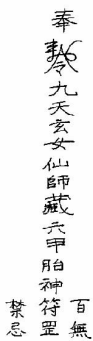 奉勅令九天玄女仙師藏六甲胎神符罡
百無
禁忌